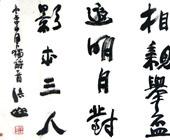 相親舉盃
邀明月對
影成三人